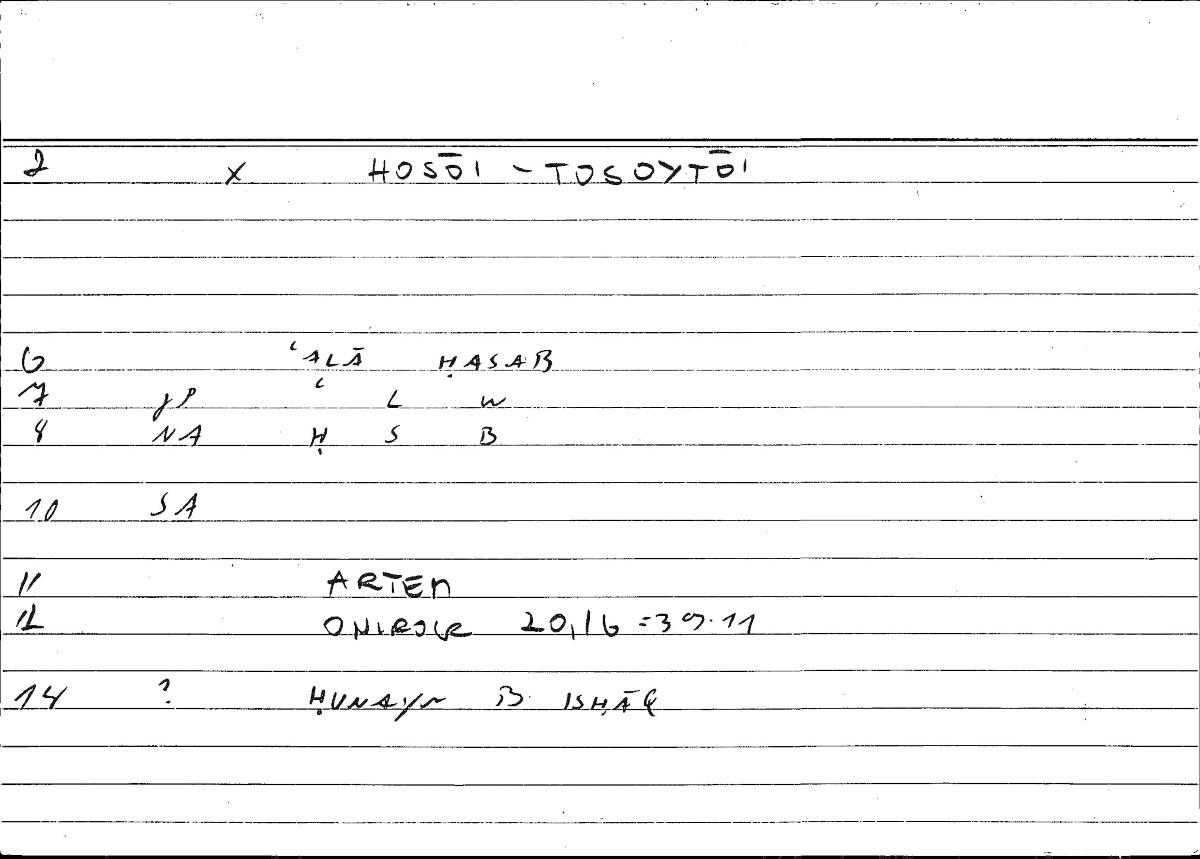 2 x HOSŌI - TOSOYTŌI
6 ʿALĀ ḤASAB
7 JP ʿ L W
8 NA Ḥ S B
10 SA
11 ARTEM
12 ONIROCR 20,16 = 39.11
14 ? ḤUNAYN B ISḤĀQ